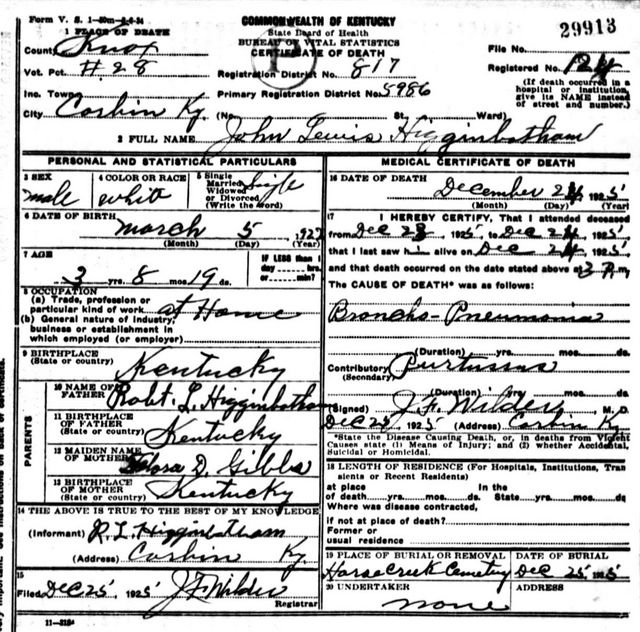 Form V. S. 1-50m-8-4-24
COMMONWEALTH OF KENTUCKY
State Board of Health
BUREAU OF VITAL STATISTICS
CERTIFICATE OF DEATH
29913
1 PLACE OF DEATH
County Knox
Vot. Pct. #28
Inc. Town
City Corbin Ky.
Registration District No. 817
Primary Registration District No. 5986
(No. St. Ward)
File No.
Registered No. 124
(If death occurred in a hospital or institution, give its NAME instead of street and number.)
2 FULL NAME John Lewis Higginbotham
PERSONAL AND STATISTICAL PARTICULARS
3 SEX male
4 COLOR OR RACE white
5 Single Married Widowed or Divorced (Write the word) Single
6 DATE OF BIRTH March 5 1922
(Month) (Day) (Year)
7 AGE
3 yrs. 8 mo. 19 ds.
IF LESS than 1 day hrs. or min.?
8 OCCUPATION
(a) Trade, profession or particular kind of work at Home
(b) General nature of industry, business or establishment in which employed (or employer)
9 BIRTHPLACE (State or country) Kentucky
PARENTS
10 NAME OF FATHER Robt. L. Higginbotham
11 BIRTHPLACE OF FATHER (State or country) Kentucky
12 MAIDEN NAME OF MOTHER Flora D. Gibbs
13 BIRTHPLACE OF MOTHER (State or country) Kentucky
14 THE ABOVE IS TRUE TO THE BEST OF MY KNOWLEDGE
(Informant) R. L. Higginbotham
(Address) Corbin Ky.
15
Filed Dec 25 1925 J F Wilder
Registrar
11-3184
MEDICAL CERTIFICATE OF DEATH
16 DATE OF DEATH December 24 1925
(Month) (Day) (Year)
17 I HEREBY CERTIFY, That I attended deceased
from Dec 23 1925, to Dec 24 1925
that I last saw h alive on Dec 24 1925
and that death occurred on the date stated above at 3 P.m
The CAUSE OF DEATH* was as follows:
Broncho-Pneumonia
(Duration) yrs. mos. ds.
Contributory (Secondary) Purtussus
(Duration) yrs. mos. ds.
(Signed) J. F. Wilder, M. D.
Dec 25 1925 (Address) Corbin Ky
*State the Disease Causing Death, or, in deaths from Violent Causes state (1) Means of Injury; and (2) whether Accidental, Suicidal or Homicidal.
18 LENGTH OF RESIDENCE (For Hospitals, Institutions, Transients or Recent Residents)
at place of death yrs. mos. ds. In the State yrs. mos. ds.
Where was disease contracted, if not at place of death?
Former or usual residence
19 PLACE OF BURIAL OR REMOVAL Horse Creek Cemetery
DATE OF BURIAL Dec 25 1925
20 UNDERTAKER none
ADDRESS